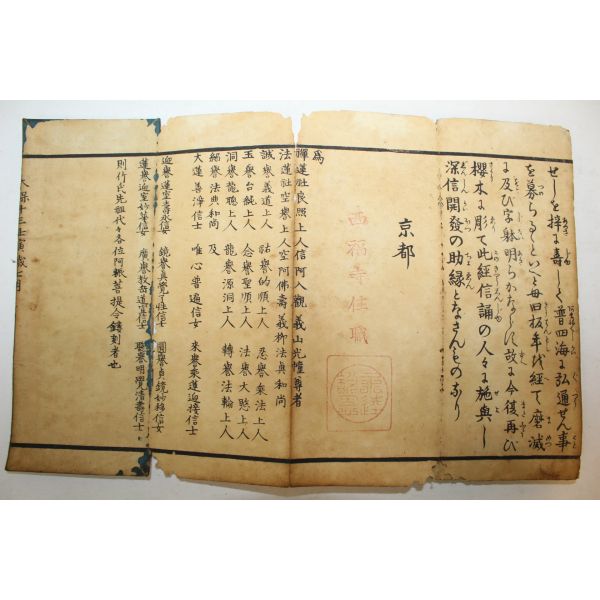 せしを梓に壽し普四海に弘通せん事
を募らるといへと毎回板年代経て磨滅
に及び字躰明らかならに故に今後再び
櫻木に彫て此經信誦の人々に施與し
深信開發の助縁となさんものなり
京都
西福寺住職
為
禪蓮社良照上人信阿入觀義山光幢尊者
法蓮社空譽上人空阿佛壽義柳法真和尚
誠譽義道上人 祐譽的順上人 忍譽乗法上人
玉譽台純上人 念譽聖順上人 法譽大愍上人
洞譽龍聰上人 龍譽源洞上人 轉譽法輪上人
縁譽法典和尚 及
大蓮善淨信士 唯心普遍信女 來譽乘蓮迎接信士
迎譽蓮室壽永信女 鏡譽真覺了性信士 圓譽貞鏡妙移信女
蓮譽迎室妙華信女 廣譽教岳道仙信士 聰譽明聞清壽信士
則竹氏先祖代々各位阿耨菩提令鏤刻者也
保十二壬寅歳 月